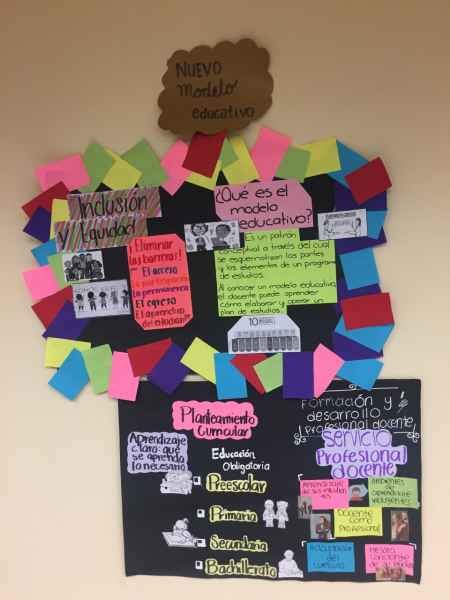 NUEVO
Modelo
educativo
Inclusión
y Equidad
¡Eliminar
las barreras!
El acceso
La participación
La permanencia
El egreso
El aprendizaje
del estudiante
¿Qué es el
modelo
educativo?
Es un patrón
conceptual a través del cual
se esquematizan las partes
y los elementos de un programa
de estudios.
Al conocer un modelo educativo
el docente puede aprender
cómo elaborar y operar un
plan de estudios.
10
Planteamiento
Curricular
Aprendizaje
claro: que
se aprenda
lo necesario
Educación
Obligatoria
Preescolar
Primaria
Secundaria
Bachillerato
Formación y
desarrollo
Profesional docente
Servicio
Profesional
docente
Aprendizaje
de sus estudian
tes
Ambientes
de aprendizaje
Docente
como
Profesional
curriculum
Mejora